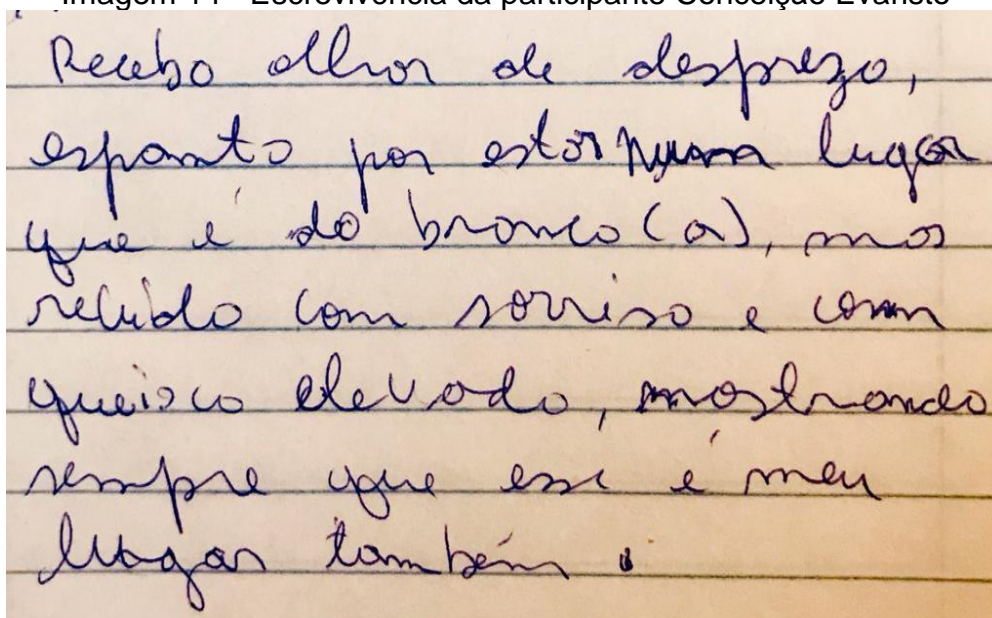 Imagem 14 - Escrevivência da participante Conceição Evaristo
Recebo olhar de desprezo,
espanto por estar numa lugar
que é do branco(a), mas
revido com sorriso e com
queisco elevado, mostrando
sempre que esse é meu
lugar também.